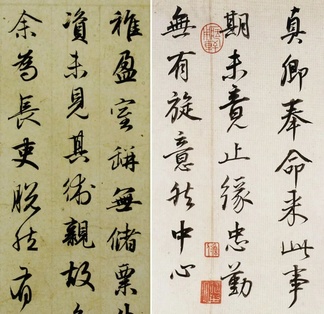 真卿奉命来此事
期未竟止緣忠勤
無有旋意然中心
稚盈室缾無儲粟
資未見其術親故
余為長吏脱然有